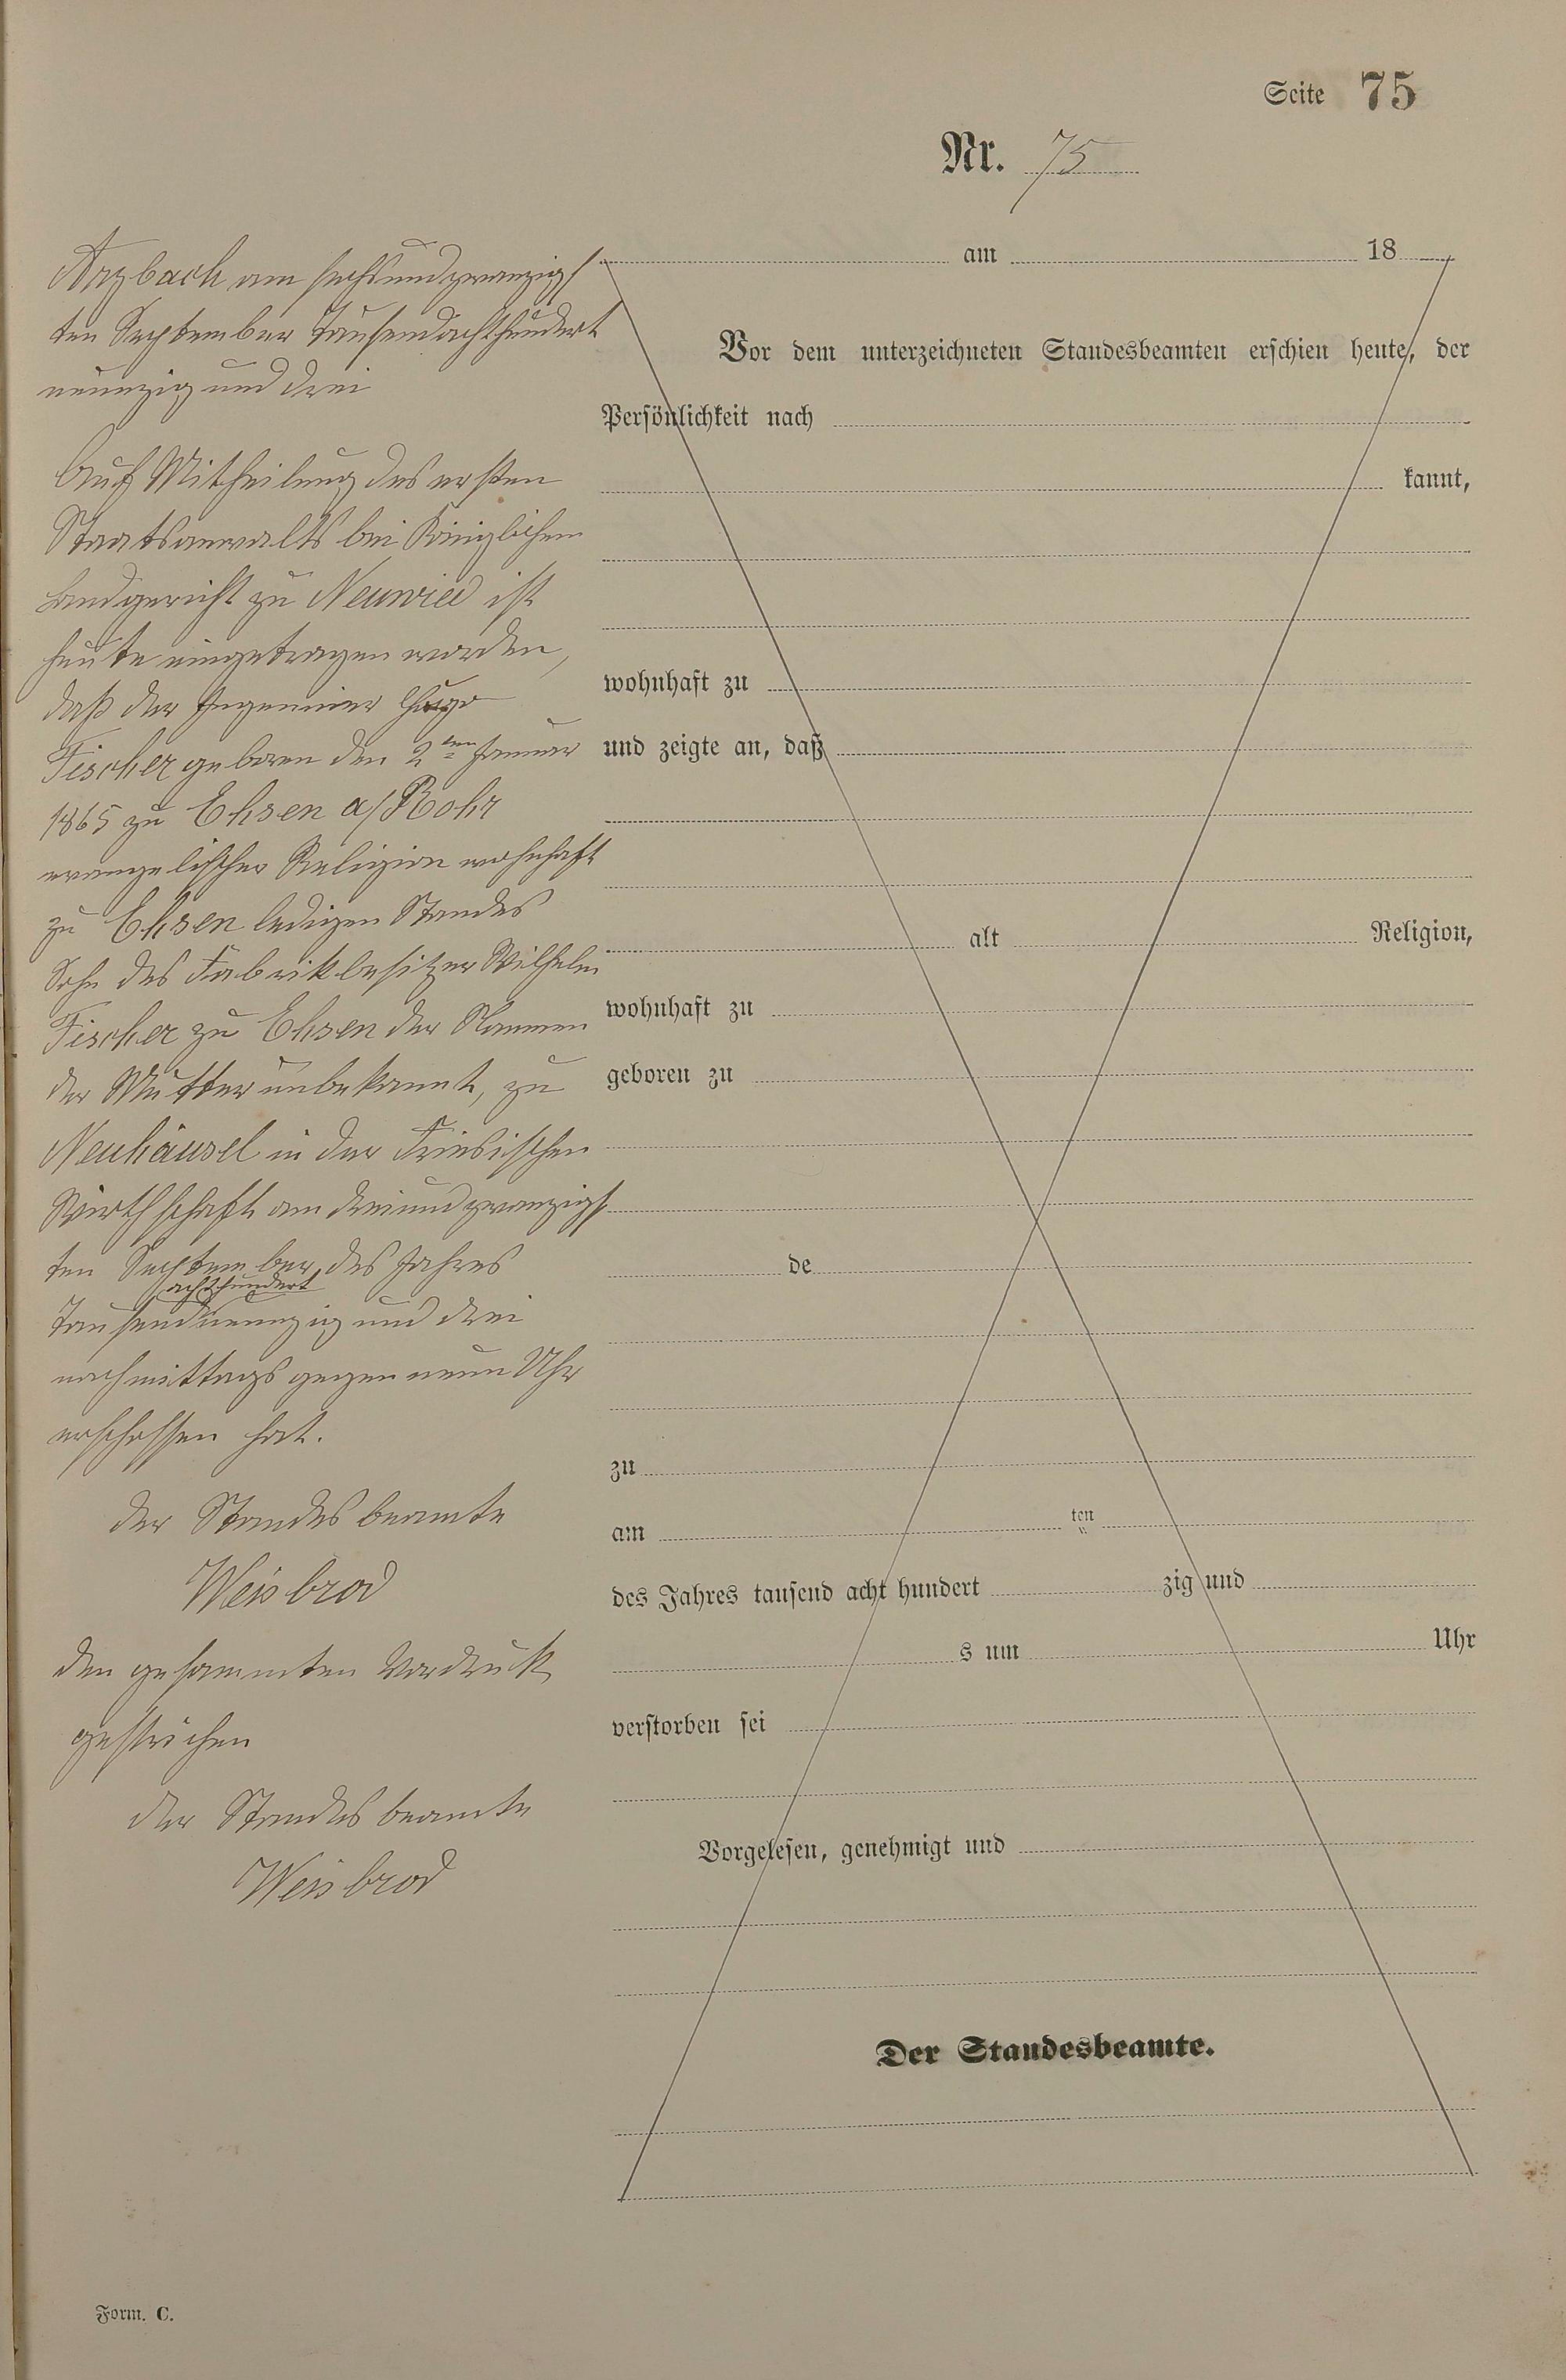 Seite 75
Nr. 75
Arzbach am sechsundzwanzigs
ten September Tausendachthundert
neunzig und drei
Auf Mitheilung des ersten
Staatsanwalts bei Königlichem
Landgericht zu Neuwied ist
heute eingetragen worden,
daß der Ingenieur Hugo
Fischer geboren den 2ten Januar
1865 zu Ehsen a/Rohr
evangelischer Religion wohnhaft
zu Ehsen ledigen Standes
Sohn des Fabrikbesitzer Wilhelm
Fischer zu Ehsen der Namen
der Mutter unbekannt, zu
Neuhäusel in der Friebischen
Wirthschaft am dreiundzwanzigs
ten September des Jahres
achthundert
Tausendneunzig und drei
nachmittags gegen neun Uhr
erschossen hat.
der Standesbeamte
Weisbrod
den gesammten Vordruck
gestrichen
der Standesbeamte
Weisbrod
am 18
Vor dem unterzeichneten Standesbeamten erschien heute, der
Persönlichkeit nach
kannt,
wohnhaft zu
und zeigte an, daß
alt Religion,
wohnhaft zu
geboren zu
de
zu
am ten
des Jahres tausend acht hundert zig und
s um Uhr
verstorben sei
Vorgelesen, genehmigt und
Der Standesbeamte.
Form. C.